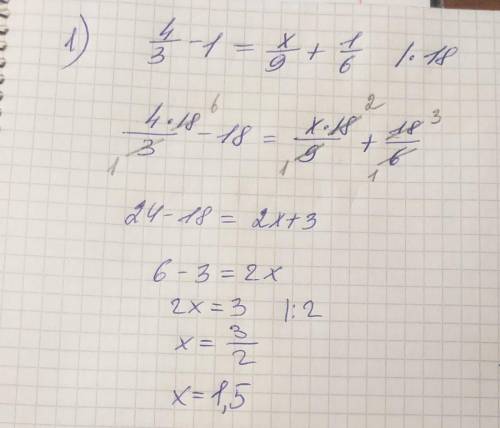 1) 4/3 - 1 = x/9 + 1/6 |·18
4·18⁶/3₁ - 18 = x·18²/9₁ + 18³/6₁
24-18 = 2x+3
6-3 = 2x
2x = 3 |:2
x = 3/2
x = 1,5